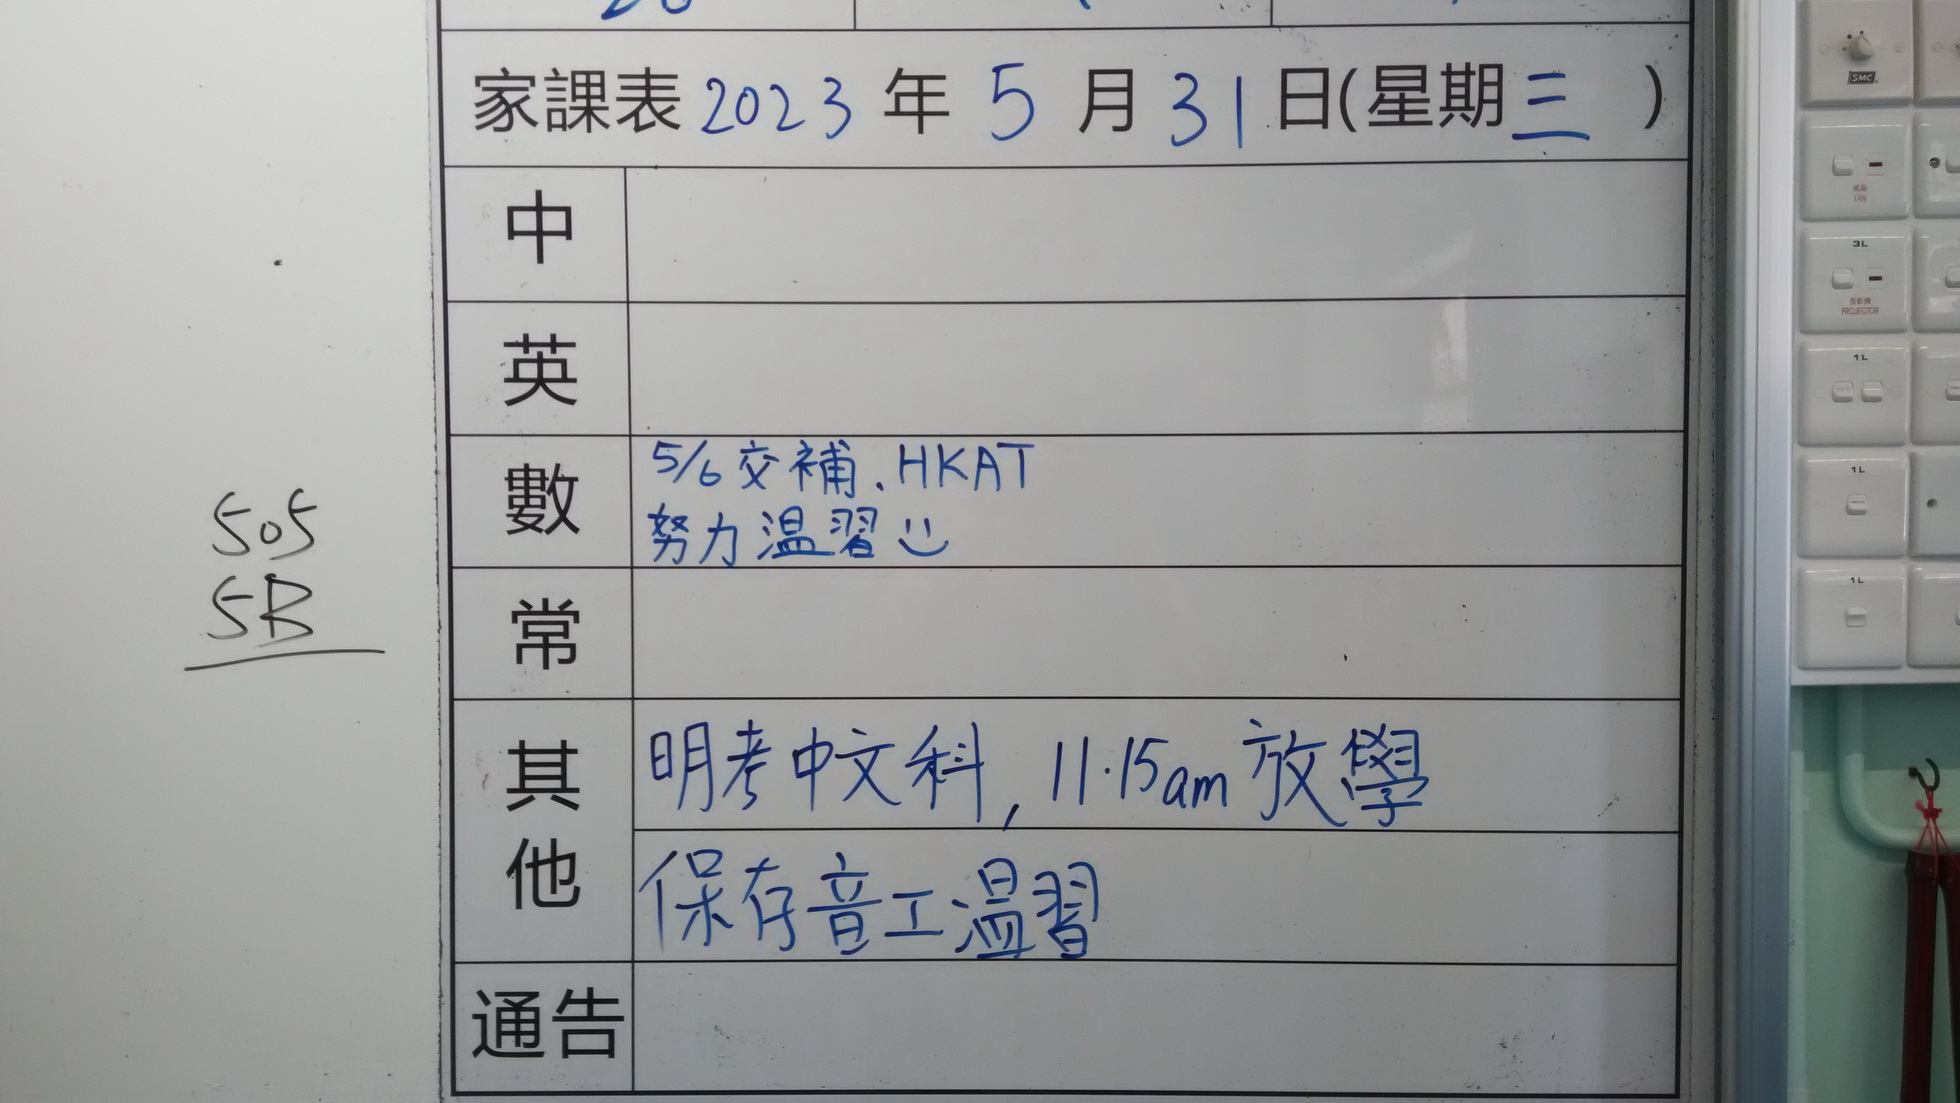 家課表 2023 年 5 月 31 日(星期三)
中
英
數
5/6 交補.HKAT
努力温習
505
5B
常
其他
明考中文科, 11.15am 放學
保存音工温習
通告
SMC
風扇
FAN
3L
投影機
PROJECTOR
1L
1L
1L